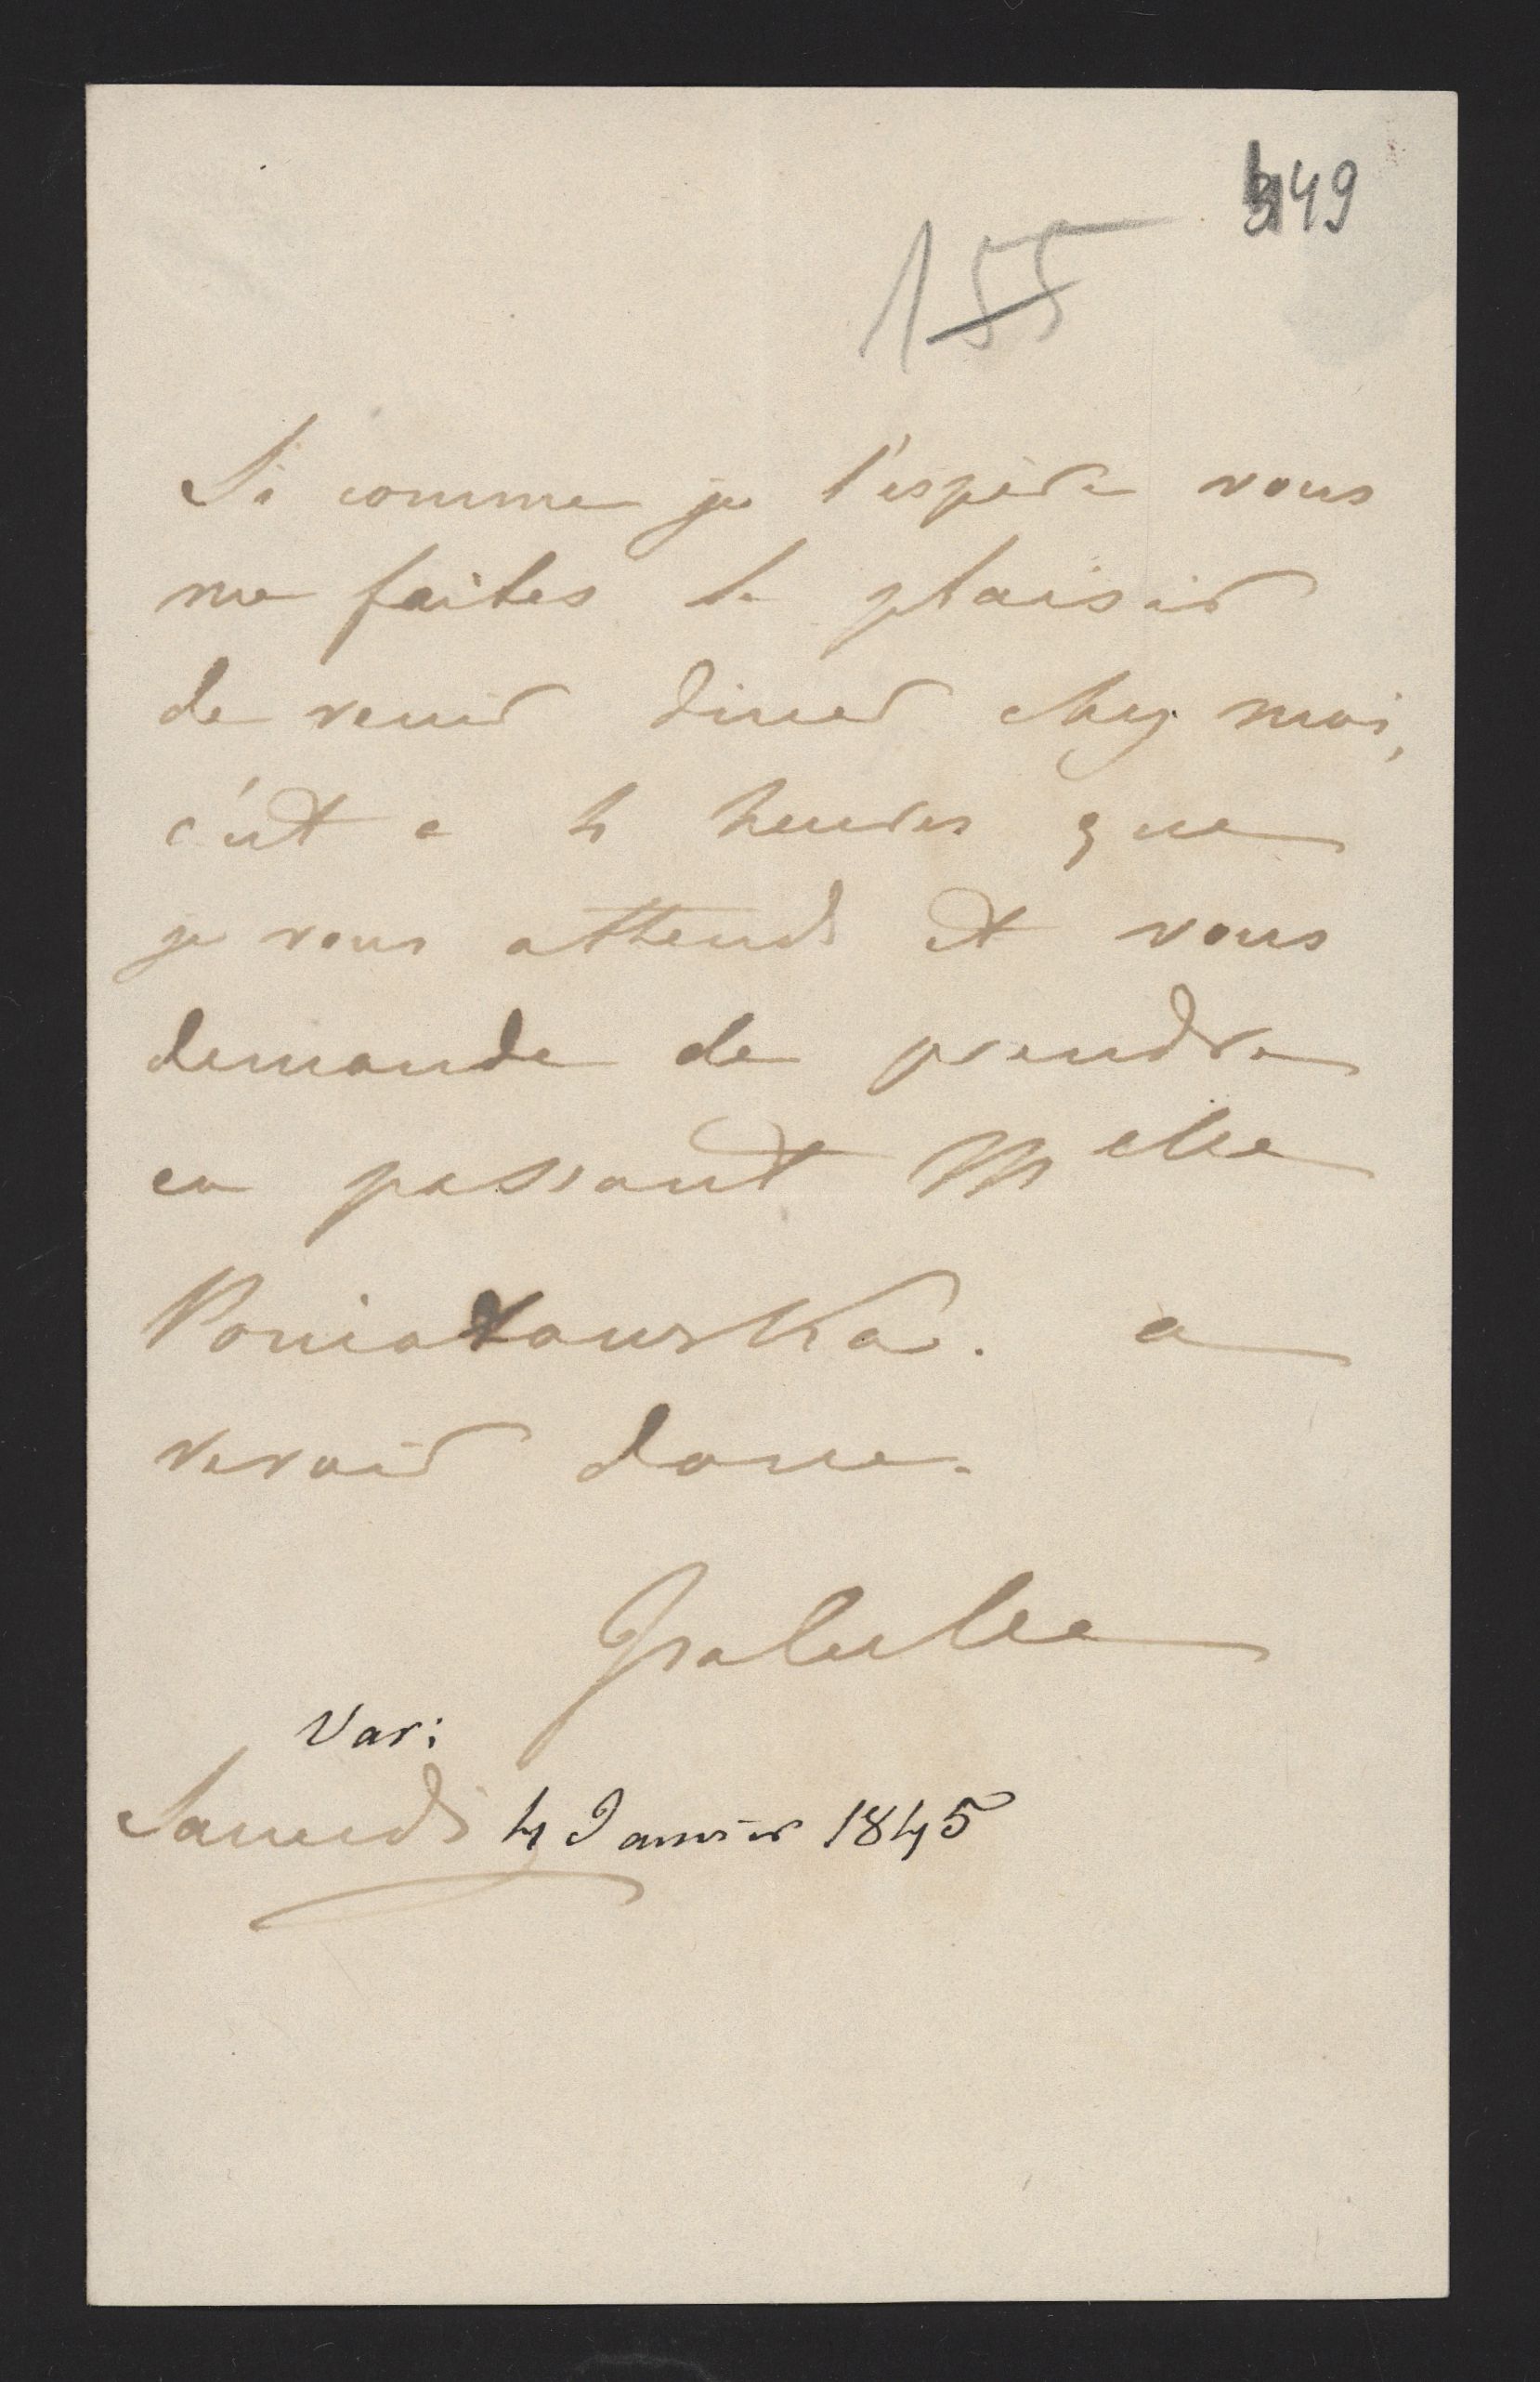 149
155
Si comme je l'espère vous
me faites le plaisir
de venir diner chez moi,
c'est a 4 heures que
je vous attends et vous
demande de prendre
en passant Melle
Poniatowska. a
revoir donc.
Isabelle
Var:
Samedi 4 Janvier 1845